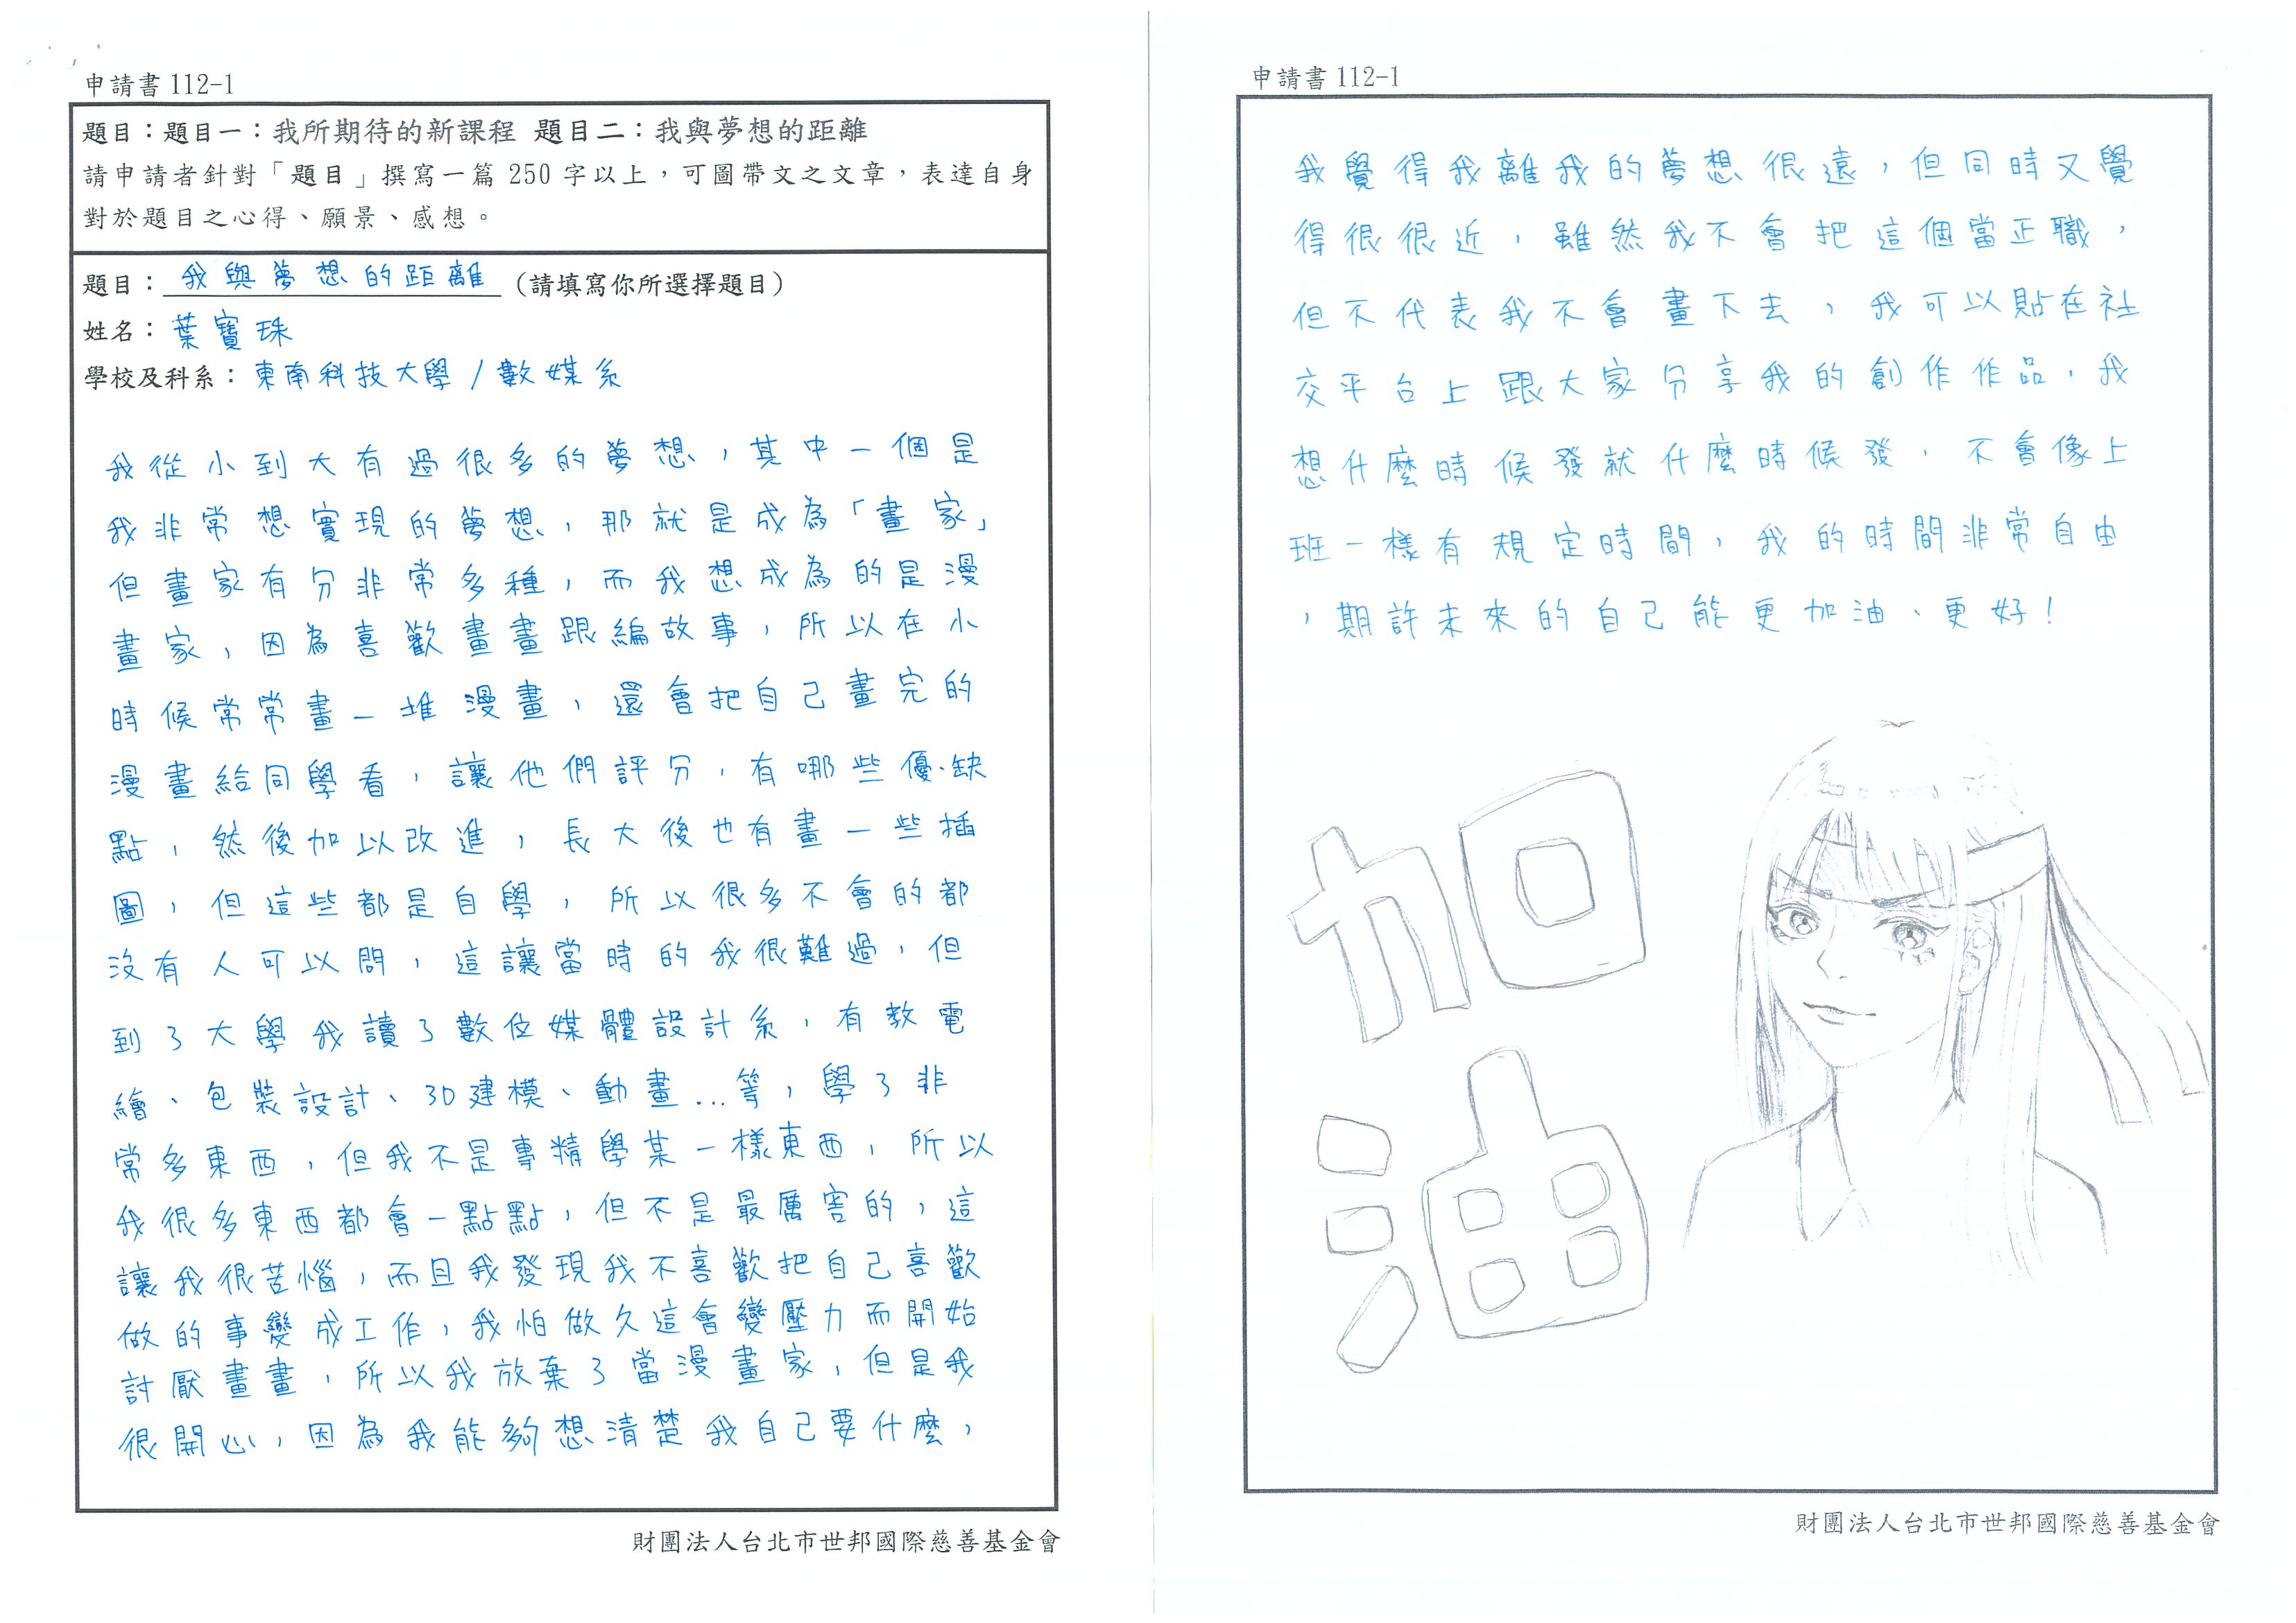 申請書 112-1
題目：題目一：我所期待的新課程 題目二：我與夢想的距離
請申請者針對「題目」撰寫一篇 250 字以上，可圖帶文之文章，表達自身
對於題目之心得、願景、感想。
題目：我與夢想的距離（請填寫你所選擇題目）
姓名：葉寶珠
學校及科系：東南科技大學/數媒系
我從小到大有過很多的夢想，其中一個是
我非常想實現的夢想，那就是成為「畫家」
但畫家有分非常多種，而我想成為的是漫
畫家，因為喜歡畫畫跟編故事，所以在小
時候常常畫一堆漫畫，還會把自己畫完的
漫畫給同學看，讓他們評分，有哪些優、缺
點，然後加以改進，長大後也有畫一些插
圖，但這些都是自學，所以很多不會的都
沒有人可以問，這讓當時的我很難過，但
到了大學我讀了數位媒體設計系，有教電
繪、包裝設計、3D建模、動畫...等，學了非
常多東西，但我不是專精學某一樣東西，所以
我很多東西都會一點點，但不是最厲害的，這
讓我很苦惱，而且我發現我不喜歡把自己喜歡
做的事變成工作，我怕做久這會變壓力而開始
討厭畫畫，所以我放棄了當漫畫家，但是我
很開心，因為我能夠想清楚我自己要什麼，
財團法人台北市世邦國際慈善基金會
申請書 112-1
我覺得我離我的夢想很遠，但同時又覺
得很很近，雖然我不會把這個當正職，
但不代表我不會畫下去，我可以貼在社
交平台上跟大家分享我的創作作品，我
想什麼時候發就什麼時候發，不會像上
班一樣有規定時間，我的時間非常自由
，期許未來的自己能更加油、更好！
加油
財團法人台北市世邦國際慈善基金會